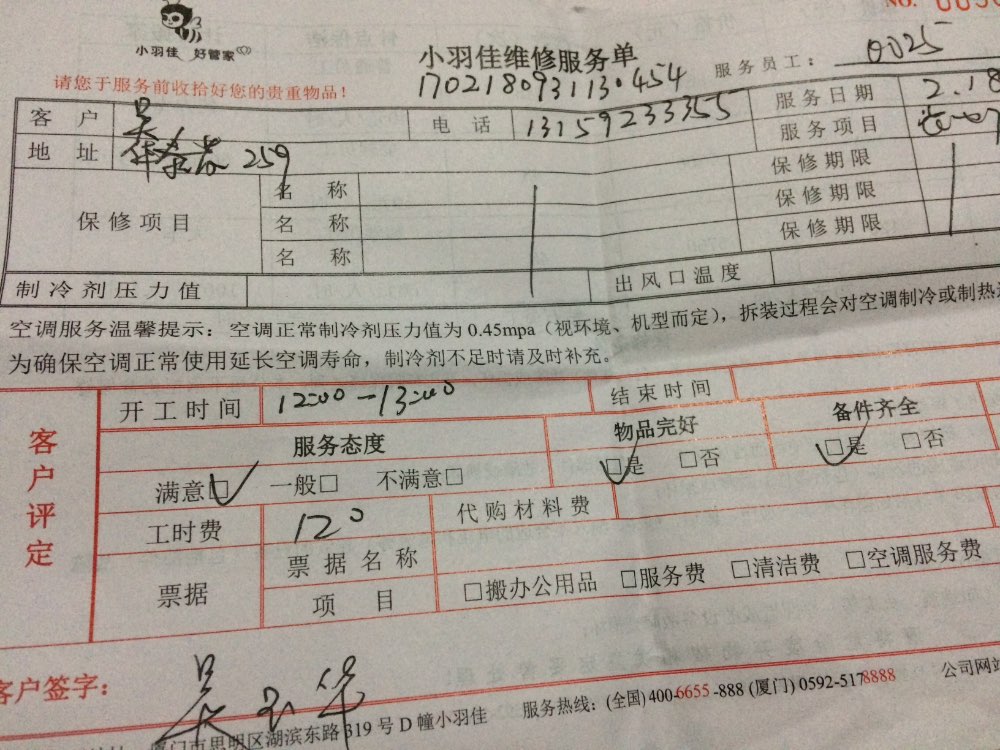 NO.
小羽佳 好管家
小羽佳维修服务单
1702180931130454
服务员工: 0025
请您于服务前收拾好您的贵重物品!
客 户 吴 电 话 13159233355 服务日期 2.18
地 址 259 服务项目
保修项目 名 称 保修期限
名 称 保修期限
名 称 保修期限
制冷剂压力值 出风口温度
空调服务温馨提示: 空调正常制冷剂压力值为 0.45mpa (视环境、机型而定), 拆装过程会对空调制冷或制热
为确保空调正常使用延长空调寿命, 制冷剂不足时请及时补充。
客户评定
开工时间 12:00-13:00 结束时间
服务态度 物品完好 备件齐全
满意□ 一般□ 不满意□ □是 □否 □是 □否
工时费 120 代购材料费
票据 票据名称 □搬办公用品 □服务费 □清洁费 □空调服务费
项 目
客户签字: 吴玉华
厦门市思明区湖滨东路 319 号 D 幢小羽佳 服务热线: (全国) 400-6655-888 (厦门) 0592-5178888 公司网站